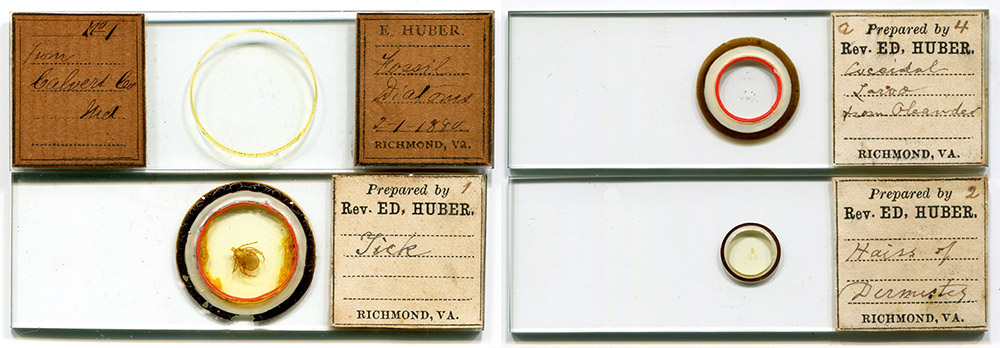 No 1
From
Calvert Co
Md
E. HUBER.
Fossil
Diatoms
2-1-1880
RICHMOND, VA.
a Prepared by 4
Rev. ED, HUBER.
Coccidal
Larva
from Oleander
RICHMOND, VA.
Prepared by 1
Rev. ED, HUBER.
Tick
RICHMOND, VA.
Prepared by 2
Rev. ED, HUBER.
Hairs of
Dermestes
RICHMOND, VA.